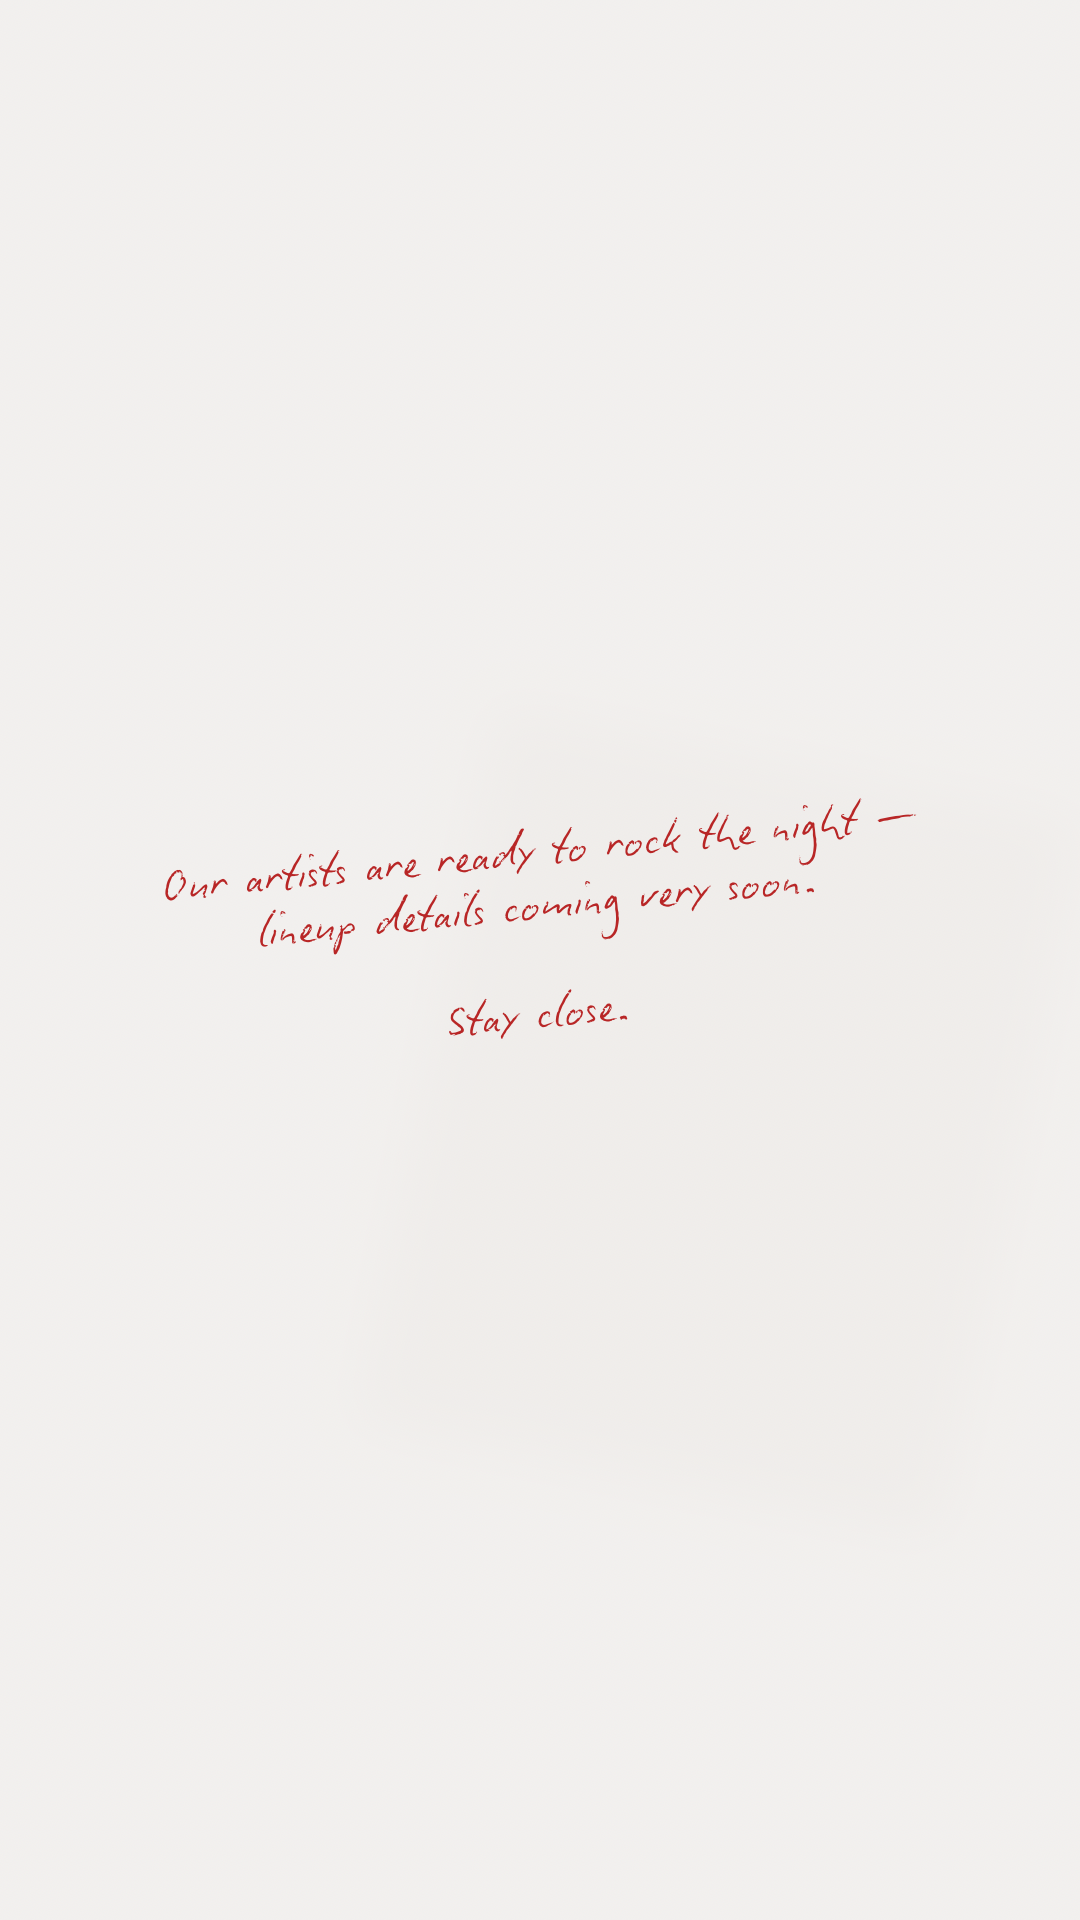 Our artists are ready to rock the night —
lineup details coming very soon.
Stay close.